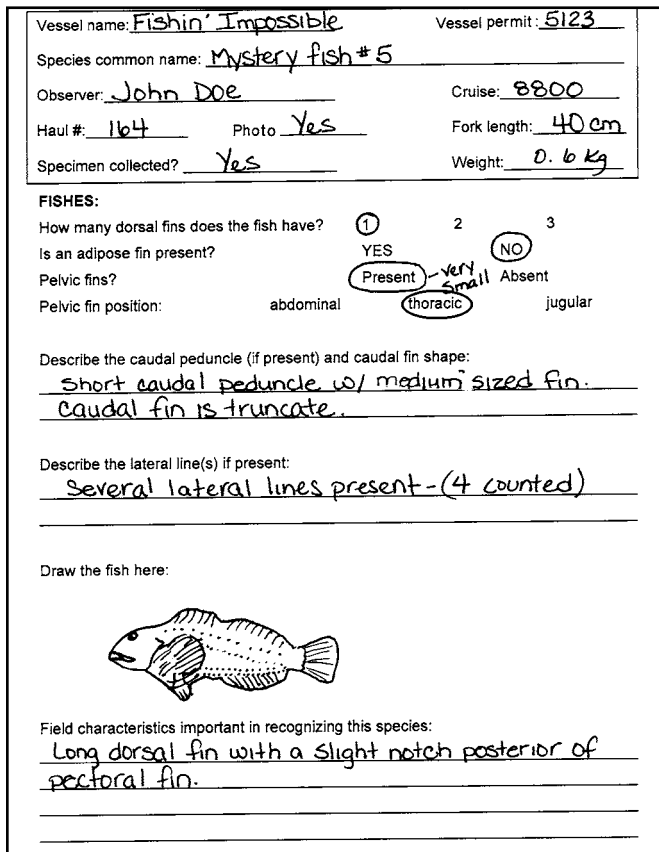 Vessel name: Fishin' Impossible Vessel permit: 5123
Species common name: Mystery fish #5
Observer: John Doe Cruise: 8800
Haul #: 164 Photo Yes Fork length: 40 cm
Specimen collected? Yes Weight: 0.6 kg
FISHES:
How many dorsal fins does the fish have? 1 2 3
Is an adipose fin present? YES NO
Pelvic fins? Present - very small Absent
Pelvic fin position: abdominal thoracic jugular
Describe the caudal peduncle (if present) and caudal fin shape:
Short caudal peduncle w/ medium sized fin.
Caudal fin is truncate.
Describe the lateral line(s) if present:
Several lateral lines present - (4 counted)
Draw the fish here:
Field characteristics important in recognizing this species:
Long dorsal fin with a slight notch posterior of
pectoral fin.